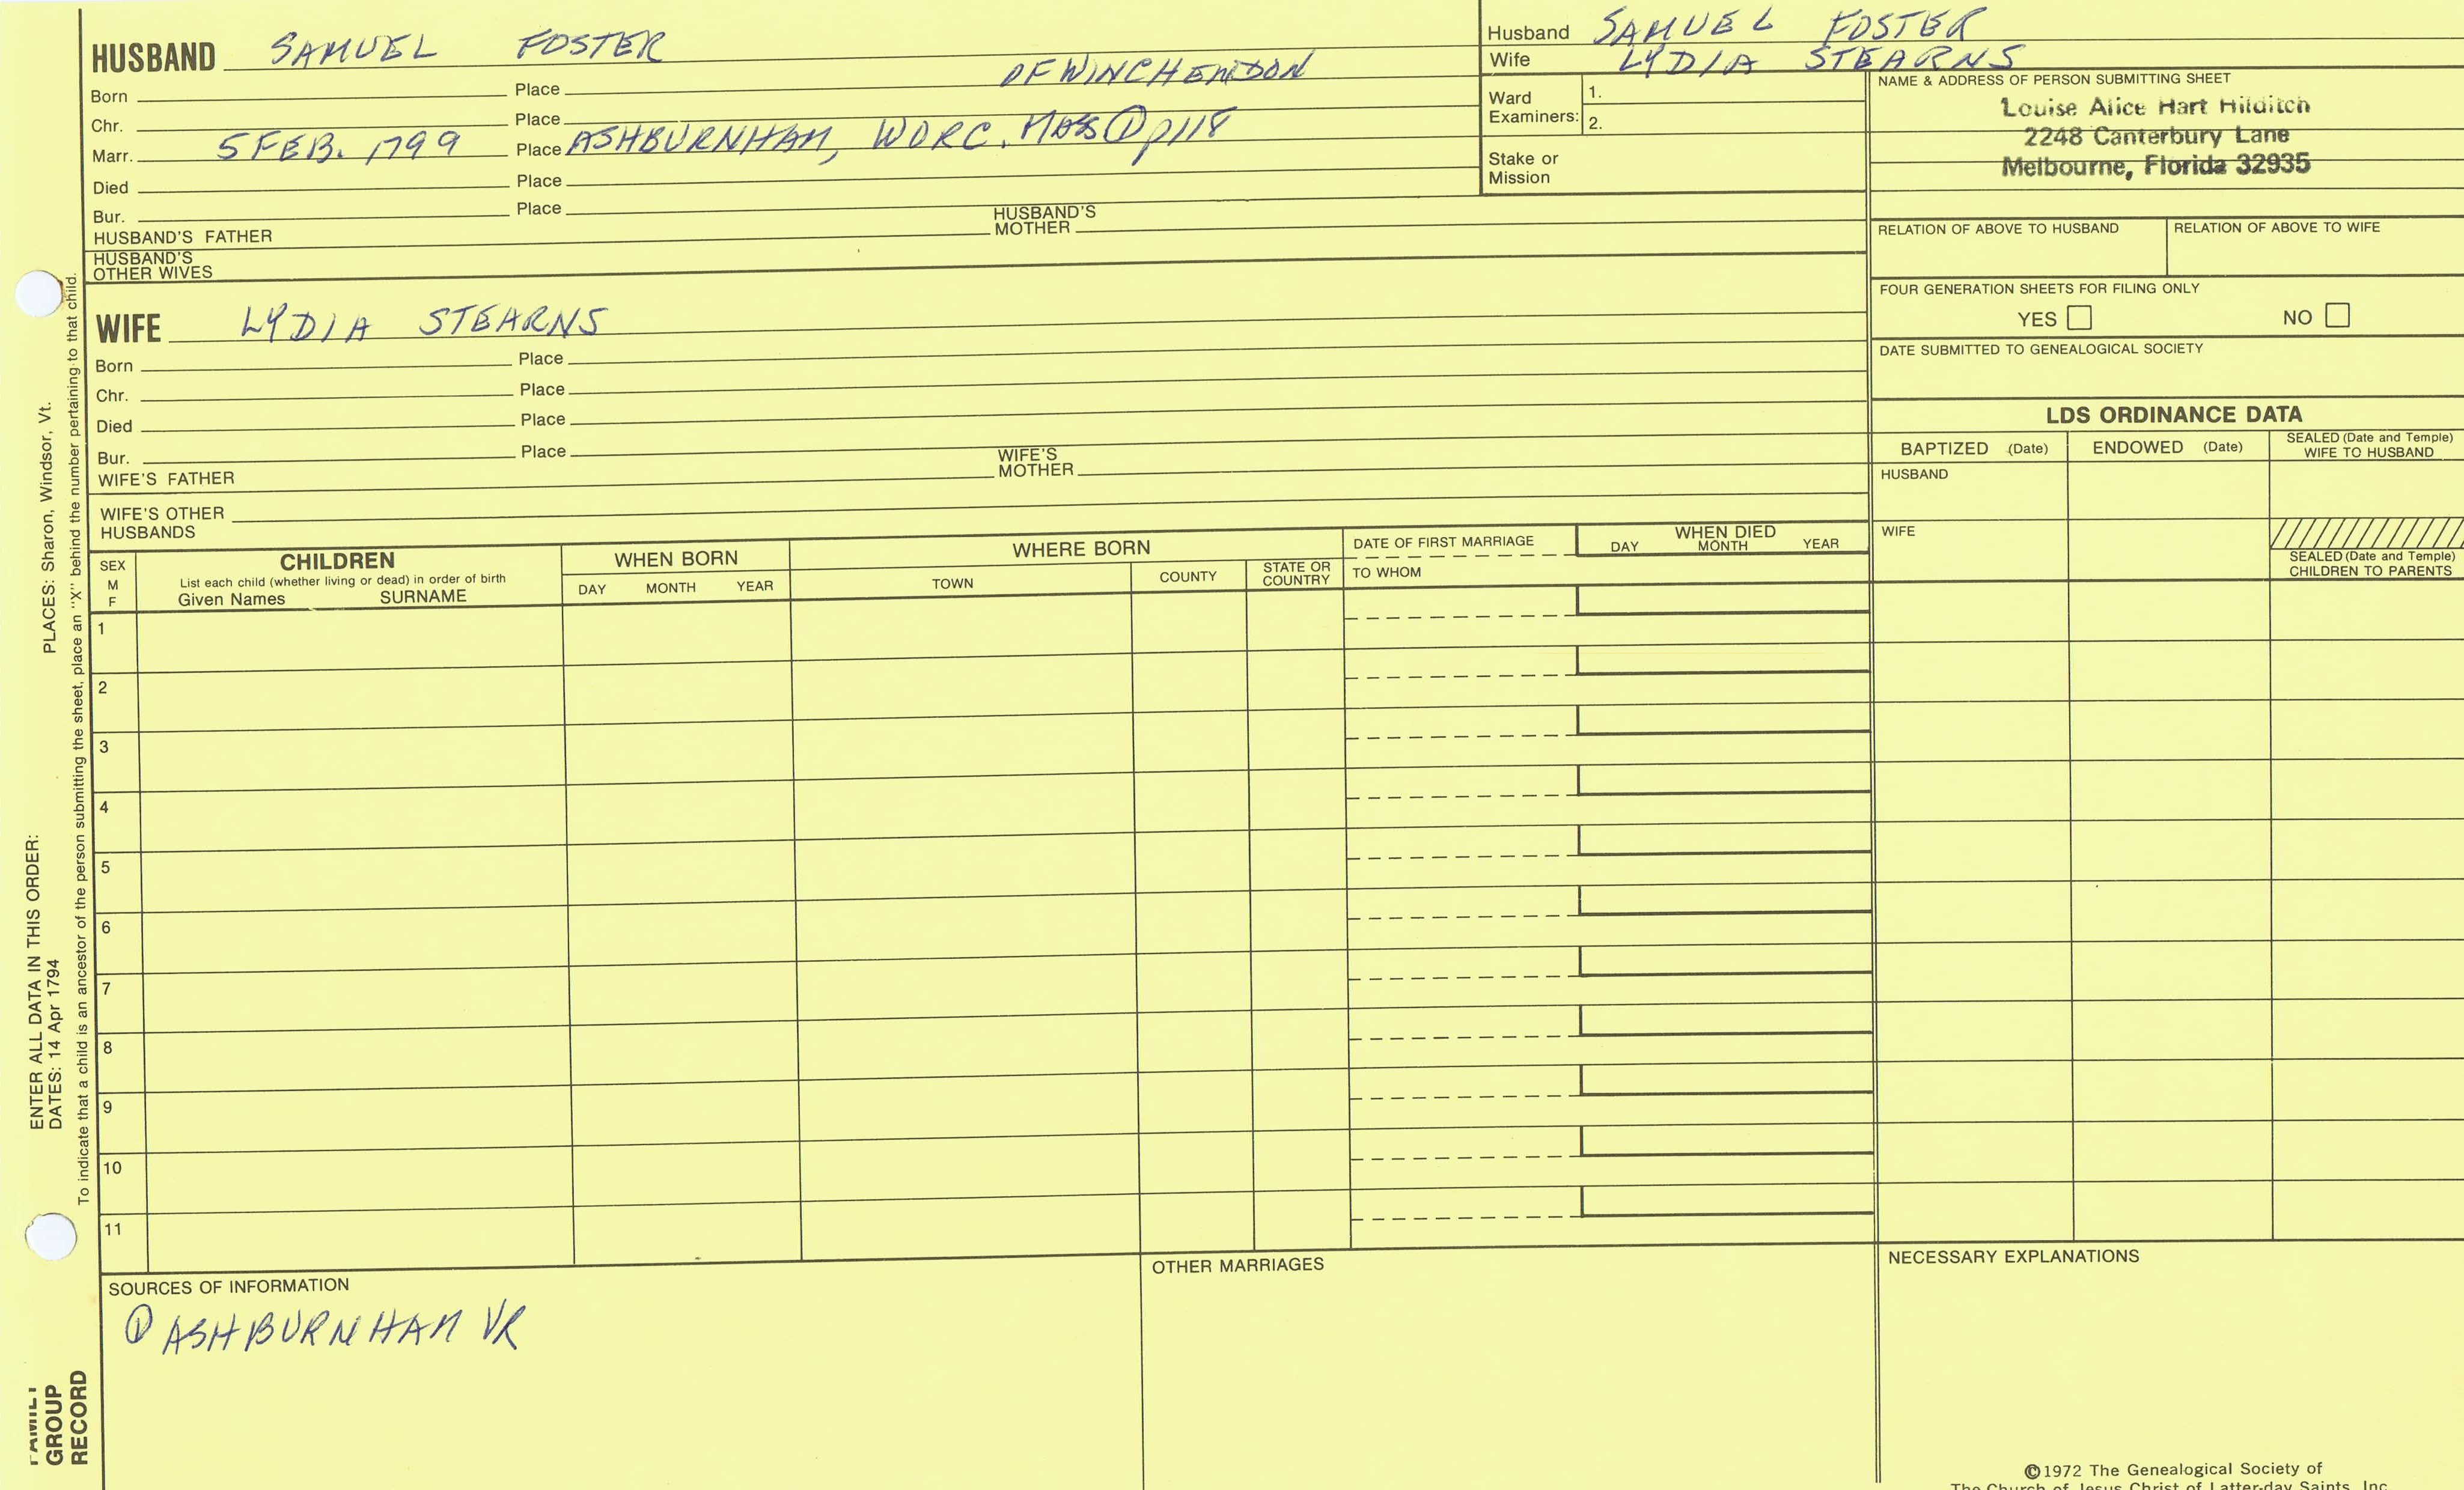 HUSBAND SAMUEL FOSTER
OF WINCHENDON
Born Place
Chr. Place
Marr. 5 FEB. 1799 Place ASHBURNHAM, WORC. MASS ① p118
Died Place
Bur. Place
HUSBAND'S FATHER HUSBAND'S MOTHER
HUSBAND'S
OTHER WIVES
WIFE LYDIA STEARNS
Born Place
Chr. Place
Died Place
Bur. Place
WIFE'S FATHER WIFE'S MOTHER
WIFE'S OTHER
HUSBANDS
Husband SAMUEL FOSTER
Wife LYDIA STEARNS
Ward
Examiners: 1.
2.
Stake or
Mission
NAME & ADDRESS OF PERSON SUBMITTING SHEET
Louise Alice Hart Hilditch
2248 Canterbury Lane
Melbourne, Florida 32935
RELATION OF ABOVE TO HUSBAND RELATION OF ABOVE TO WIFE
FOUR GENERATION SHEETS FOR FILING ONLY
YES NO
DATE SUBMITTED TO GENEALOGICAL SOCIETY
LDS ORDINANCE DATA
BAPTIZED (Date) ENDOWED (Date) SEALED (Date and Temple)
WIFE TO HUSBAND
HUSBAND
WIFE
SEALED (Date and Temple)
CHILDREN TO PARENTS
SEX
M
F
CHILDREN
List each child (whether living or dead) in order of birth
Given Names SURNAME
WHEN BORN
DAY MONTH YEAR
WHERE BORN
TOWN COUNTY STATE OR
COUNTRY
DATE OF FIRST MARRIAGE
TO WHOM
WHEN DIED
DAY MONTH YEAR
1
2
3
4
5
6
7
8
9
10
11
SOURCES OF INFORMATION
① ASHBURNHAM VR
OTHER MARRIAGES
NECESSARY EXPLANATIONS
©1972 The Genealogical Society of
The Church of Jesus Christ of Latter-day Saints, Inc.
PLACES: Sharon, Windsor, Vt.
ENTER ALL DATA IN THIS ORDER:
DATES: 14 Apr 1794
To indicate that a child is an ancestor of the person submitting the sheet, place an "X" behind the number pertaining to that child.
FAMILY
GROUP
RECORD